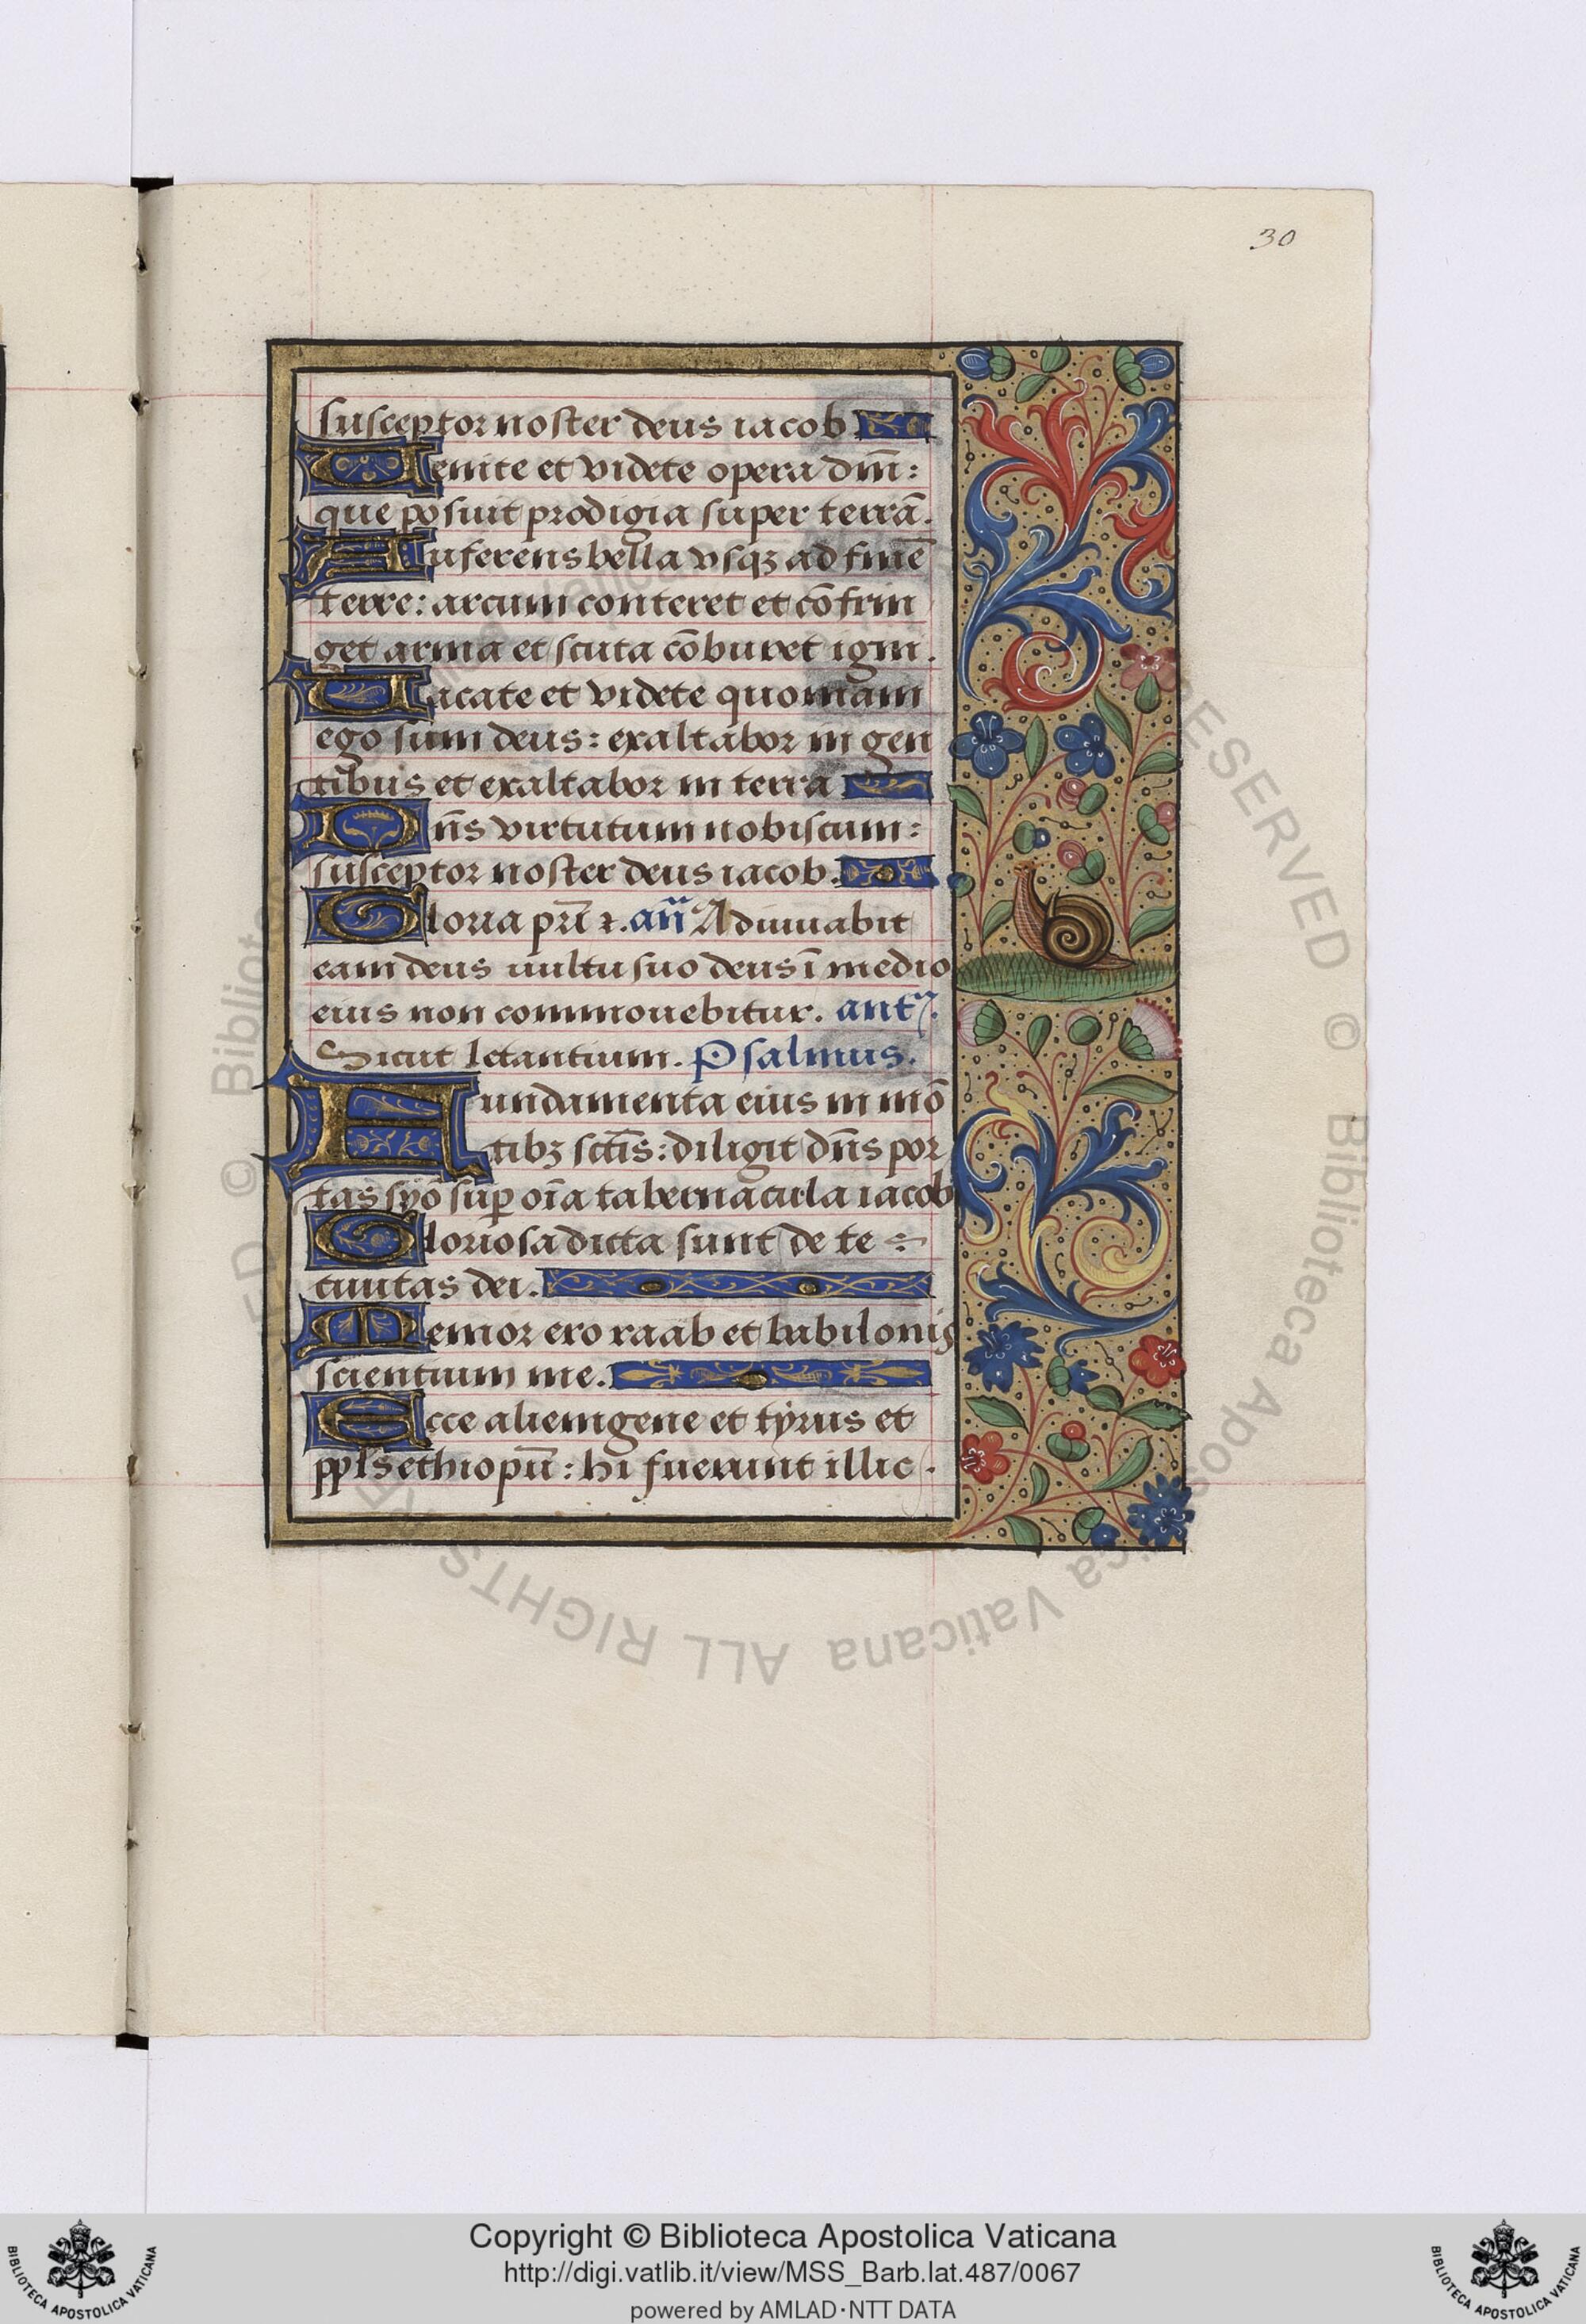 30
susceptor noster deus iacob
Uenite et videte opera dm̄:
que posuit prodigia super terrā.
Auferens bella vsqꝫ ad finē
terre: arcum conteret et cōfrin
get arma et scuta cōburet igni.
Uacate et videte quoniam
ego sum deus: exaltabor in gen
tibus et exaltabor in terra
Dn̄s virtutum nobiscum:
susceptor noster deus iacob.
Gloria pr̄i ⁊. an̄ Adiuuabit
eam deus uultu suo deus ī medio
eius non commouebitur. antꝰ.
Sicut letantium. Psalmus.
Fundamenta eius in mō
tibꝫ sctīs: diligit dn̄s por
tas syō suꝑ oīa tabernacula iacob
Gloriosa dicta sunt de te
ciuitas dei.
Memor ero raab et babilonis
scientium me.
Ecce alienigene et tyrus et
ppl̄s ethiopū: hi fuerunt illic.
© Biblioteca Apostolica Vaticana ALL RIGHTS RESERVED
Copyright © Biblioteca Apostolica Vaticana
http://digi.vatlib.it/view/MSS_Barb.lat.487/0067
powered by AMLAD·NTT DATA
BIBLIOTECA APOSTOLICA VATICANA
BIBLIOTECA APOSTOLICA VATICANA